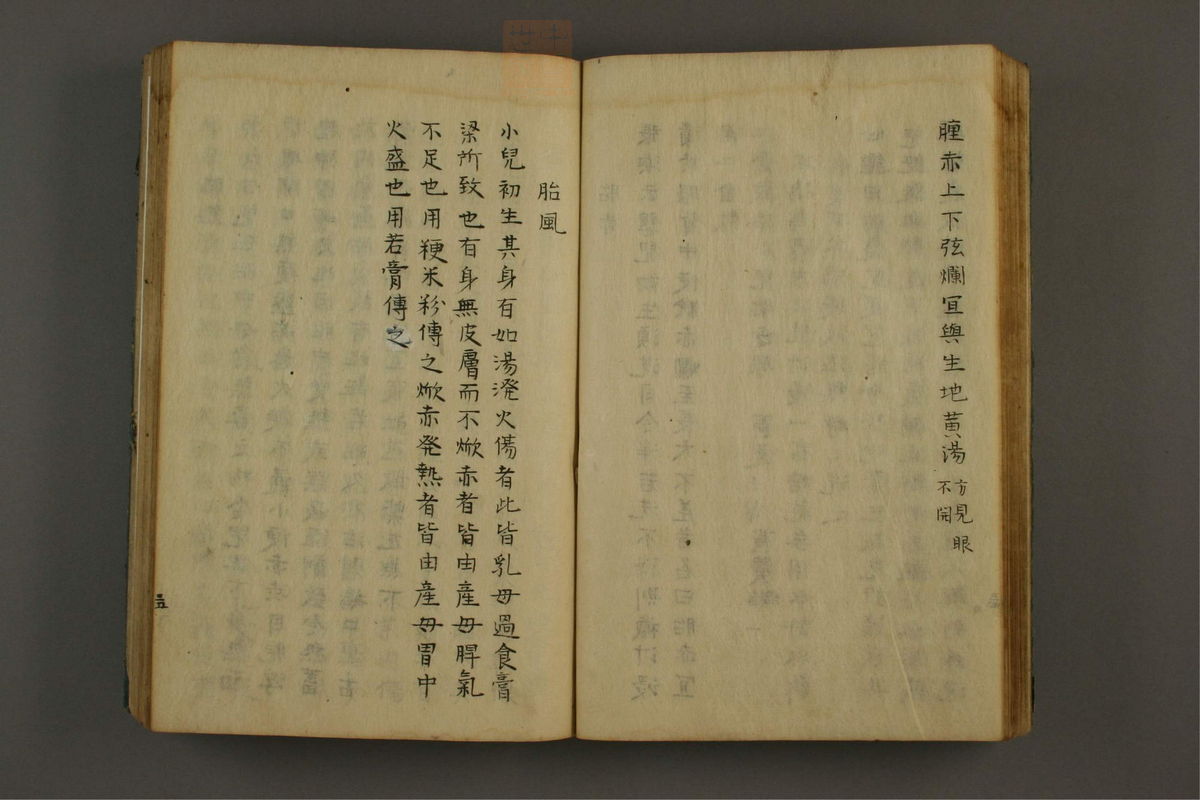 腫赤上下弦爛宜與生地黄湯方見眼
不開
胎風
小兒初生其身有如湯潑火傷者此皆乳母過食膏
梁所致也有身無皮膚而不焮赤者皆由産母脾氣
不足也用粳米粉傅之焮赤発熱者皆由産母胃中
火盛也用若膏傅之
五